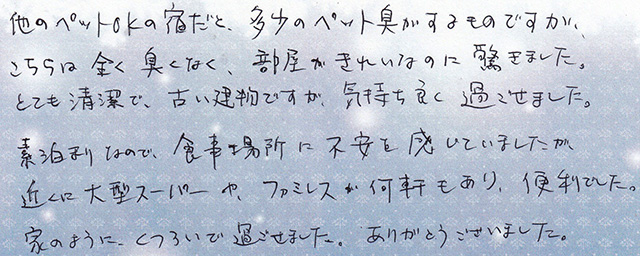 他のペットOKの宿だと、多少のペット臭がするものですが、
こちらは全く臭くなく、部屋がきれいなのに驚きました。
とても清潔で、古い建物ですが、気持ち良く過ごせました。
素泊りなので、食事場所に不安を感じていましたが、
近くに大型スーパーや、ファミレスが何軒もあり、便利でした。
家のように、くつろいで過ごせました。ありがとうございました。